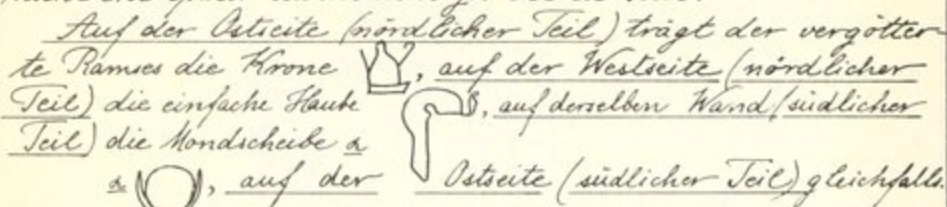 Auf der Ostseite (nördlicher Teil) trägt der vergötter-
te Ramses die Krone , auf der Westseite (nördlicher
Teil) die einfache Haube , auf derselben Wand (südlicher
Teil) die Mondscheibe
, auf der Ostseite (südlicher Teil) gleichfalls.